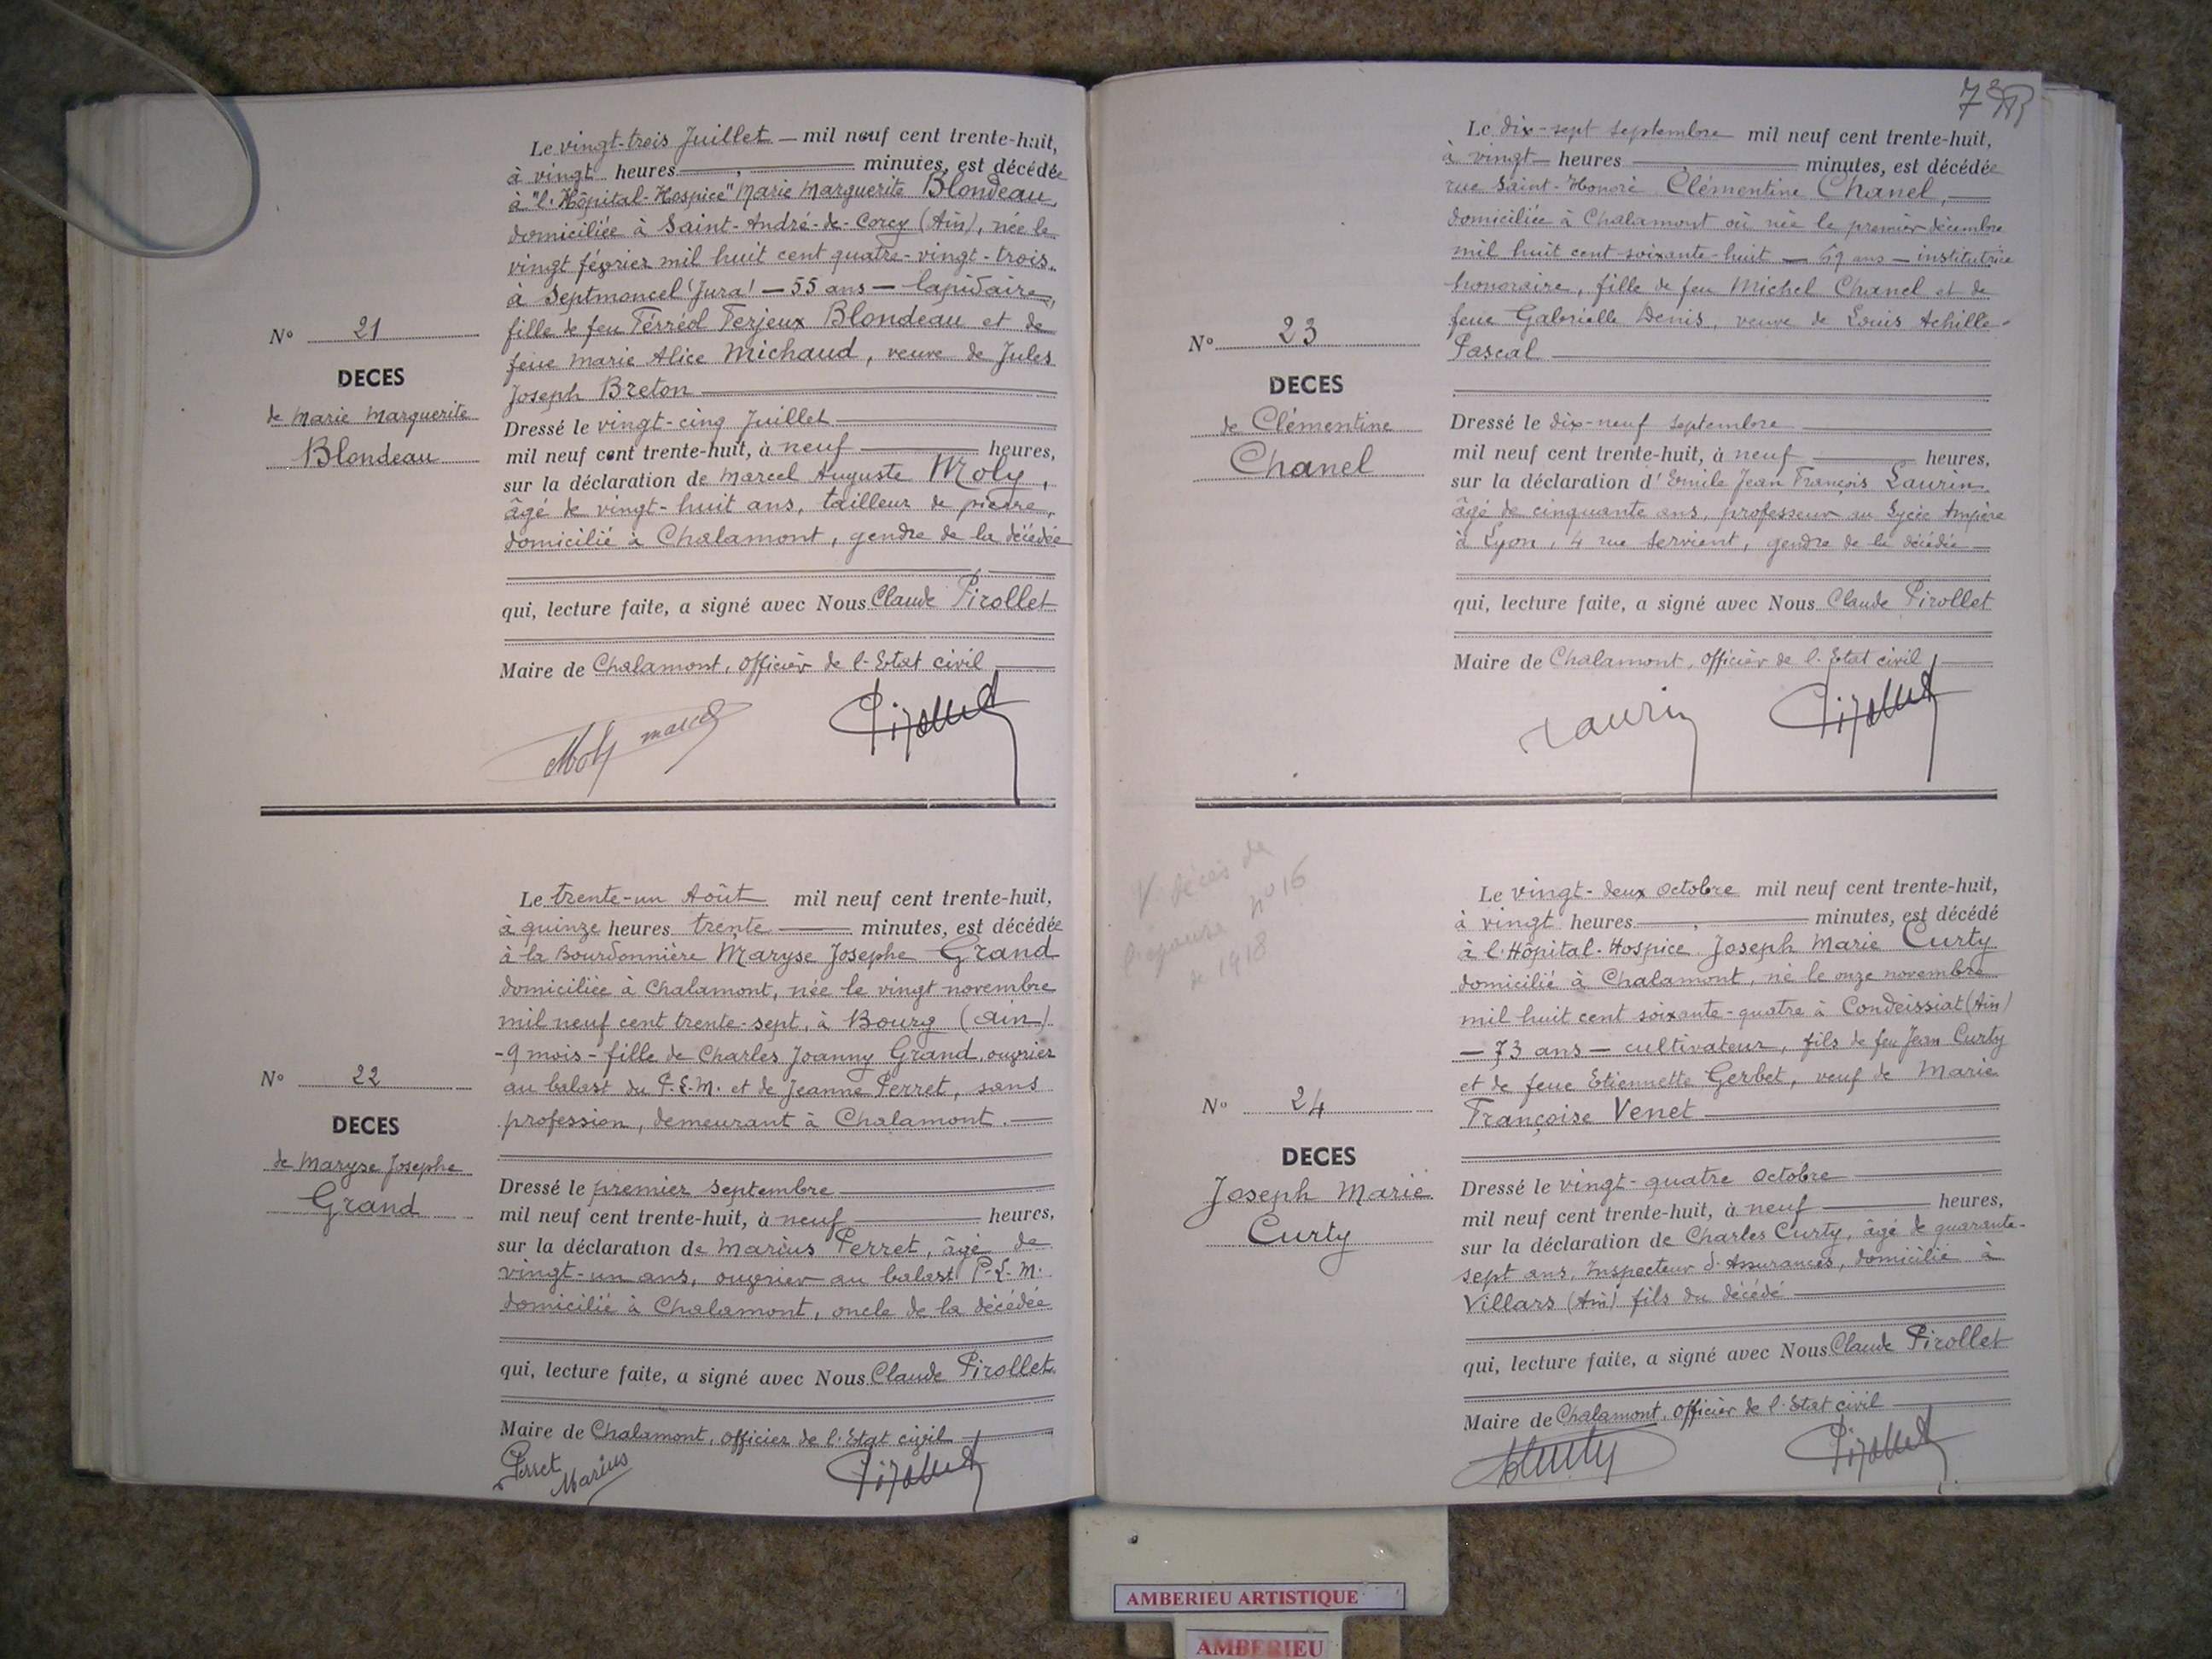 Le vingt-trois Juillet — mil neuf cent trente-huit,
à vingt heures —, — minutes, est décédée
à "l'Hôpital-Hospice" Marie Marguerite Blondeau,
domiciliée à Saint-André-de-Corcy (Ain), née le
vingt février mil huit cent quatre-vingt-trois
à Septmoncel (Jura) — 55 ans — lapidaire,
fille de feu Férréol Ferjeux Blondeau et de
feue Marie Alice Michaud, veuve de Jules
Joseph Breton
N° 21
DECES
de Marie Marguerite
Blondeau
Dressé le vingt-cinq Juillet
mil neuf cent trente-huit, à neuf — heures,
sur la déclaration de Marcel Auguste Moly,
âgé de vingt-huit ans, tailleur de pierre,
domicilié à Chalamont, gendre de la décédée
qui, lecture faite, a signé avec Nous Claude Pirollet
Maire de Chalamont, Officier de l'Etat civil
Moly Marcel Pirollet
Le trente-un Août mil neuf cent trente-huit,
à quinze heures trente — minutes, est décédée
à la Bourdonnière Maryse Josephe Grand
domiciliée à Chalamont, née le vingt novembre
mil neuf cent trente-sept, à Bourg (Ain)
- 9 mois - fille de Charles Joanny Grand, ouvrier
au balast du P.L.M. et de Jeanne Perret, sans
profession, demeurant à Chalamont.
N° 22
DECES
de Maryse Josephe
Grand
Dressé le premier septembre
mil neuf cent trente-huit, à neuf — heures,
sur la déclaration de Marius Perret, âgé de
vingt-un ans, ouvrier au balast P.L.M.
domicilié à Chalamont, oncle de la décédée
qui, lecture faite, a signé avec Nous Claude Pirollet
Maire de Chalamont, Officier de l'Etat civil
Perret Marius Pirollet
Le dix-sept septembre mil neuf cent trente-huit,
à vingt — heures — minutes, est décédée
rue Saint-Honoré Clémentine Chanel,
domiciliée à Chalamont où née le premier décembre
mil huit cent soixante-huit — 69 ans — institutrice
honoraire, fille de feu Michel Chanel et de
feue Gabrielle Denis, veuve de Louis Achille
Pascal
N° 23
DECES
de Clémentine
Chanel
Dressé le dix-neuf septembre
mil neuf cent trente-huit, à neuf — heures,
sur la déclaration d'Emile Jean François Laurin
âgé de cinquante ans, professeur au Lycée Ampère
à Lyon, 4 rue Servient, gendre de la décédée
qui, lecture faite, a signé avec Nous Claude Pirollet
Maire de Chalamont, Officier de l'Etat civil
Laurin Pirollet
décès de
l'épouse n° 16
de 1918
Le vingt-deux octobre mil neuf cent trente-huit,
à vingt heures —, — minutes, est décédé
à l'Hôpital-Hospice Joseph Marie Curty
domicilié à Chalamont, né le onze novembre
mil huit cent soixante-quatre à Condeissiat (Ain)
— 73 ans — cultivateur, fils de feu Jean Curty
et de feue Etiennette Gerbet, veuf de Marie
Françoise Venet
N° 24
DECES
Joseph Marie
Curty
Dressé le vingt-quatre octobre
mil neuf cent trente-huit, à neuf — heures,
sur la déclaration de Charles Curty, âgé de quarante-
sept ans, Inspecteur d'Assurances, domicilié à
Villars (Ain) fils du décédé
qui, lecture faite, a signé avec Nous Claude Pirollet
Maire de Chalamont, Officier de l'Etat civil
Curty Pirollet
AMBERIEU ARTISTIQUE
AMBERIEU